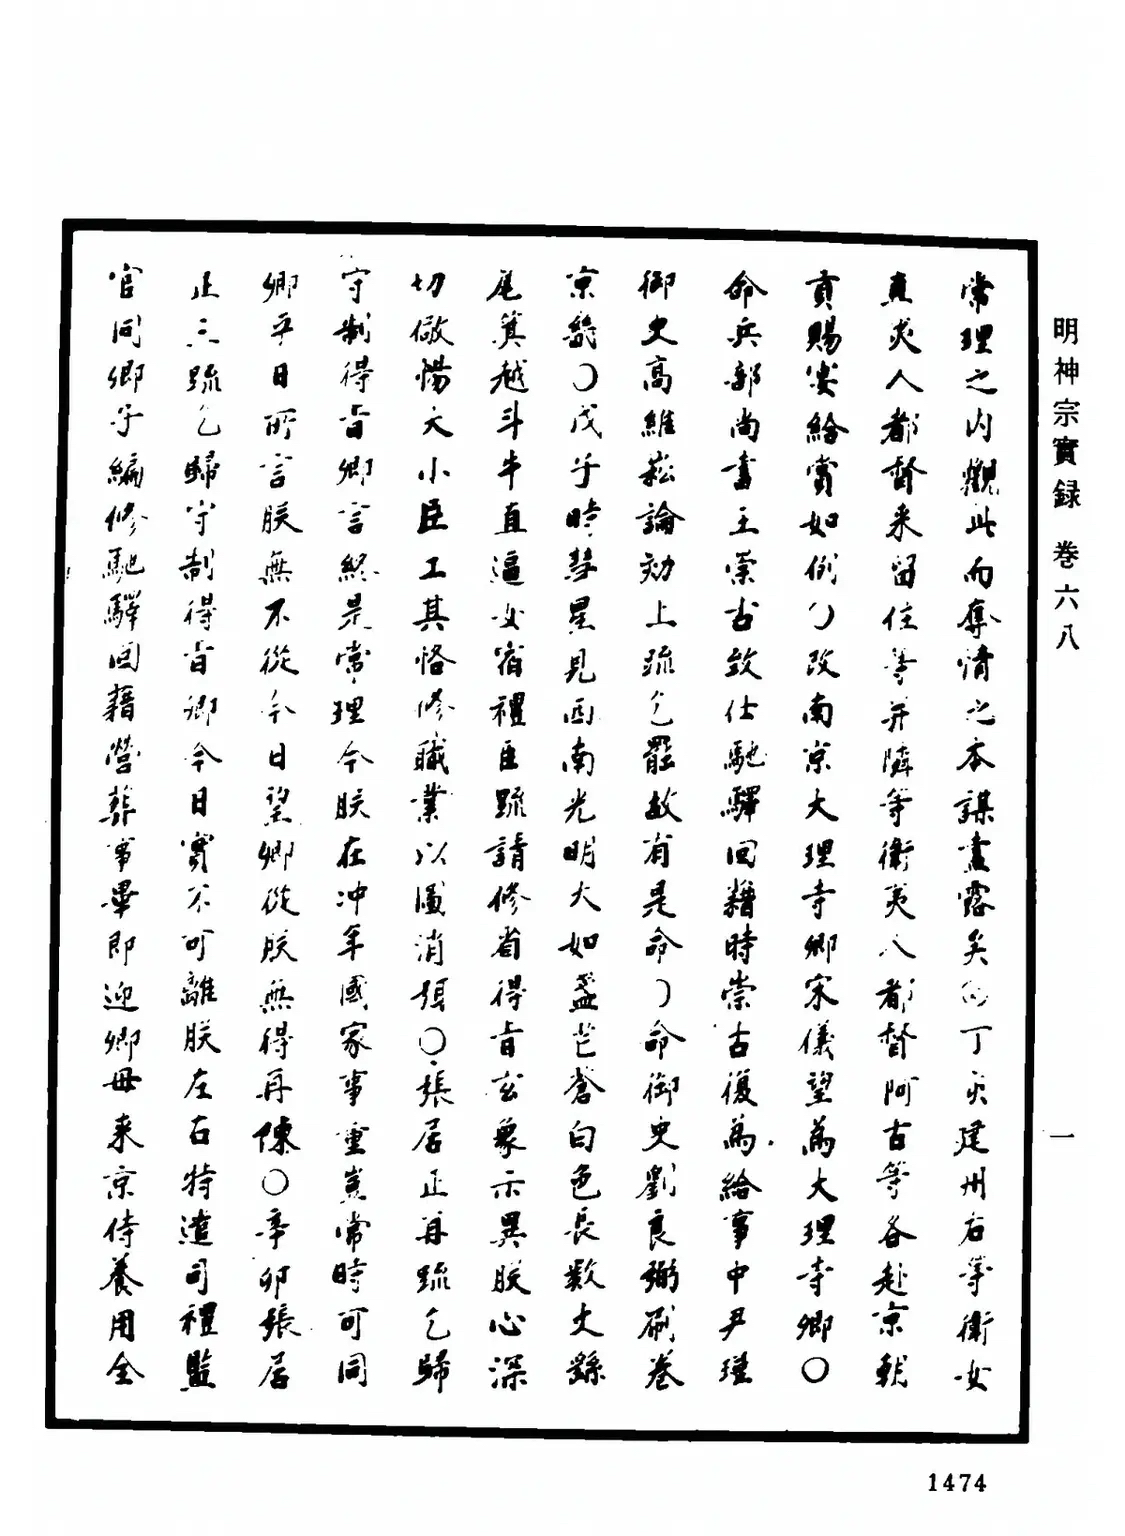 明神宗實録 卷六八
一
常理之内觀此而奪情之本謀盡露矣○丁亥建州右等衛女
直夷人都督来留住等并隣等衛夷人都督阿古等各赴京朝
貢賜宴給賞如例○改南京大理寺卿宋儀望為大理寺卿○
命兵部尚書王崇古致仕馳驛回籍時崇古復為給事中尹瑾
御史高維崧論劾上疏乞罷故有是命○命御史劉良弼刷卷
京畿○戊子時彗星見西南光明大如盞芒蒼白色長數丈繇
尾箕越斗牛直逼女宿禮臣疏請修省得旨玄象示異朕心深
切儆惕大小臣工其恪修職業以圖消弭○張居正再疏乞歸
守制得旨卿言終是常理今朕在冲年國家事重豈常時可同
卿平日所言朕無不從今日望卿從朕無得再陳○辛卯張居
正三疏乞歸守制得旨卿今日實不可離朕左右特遣司禮監
官同卿子編修馳驛回籍營葬事畢即迎卿母来京侍養用全
1474